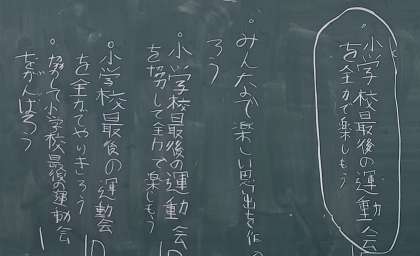 ・小学校最後の運動会
を全力で楽しもう
・みんなで楽しい思い出を作
ろう
・小学校最後の運動会
を協力して全力で楽しもう
10
・小学校最後の運動会
を全力でやりきろう
10
・協力して小学校最後の運動会
をがんばろう
1